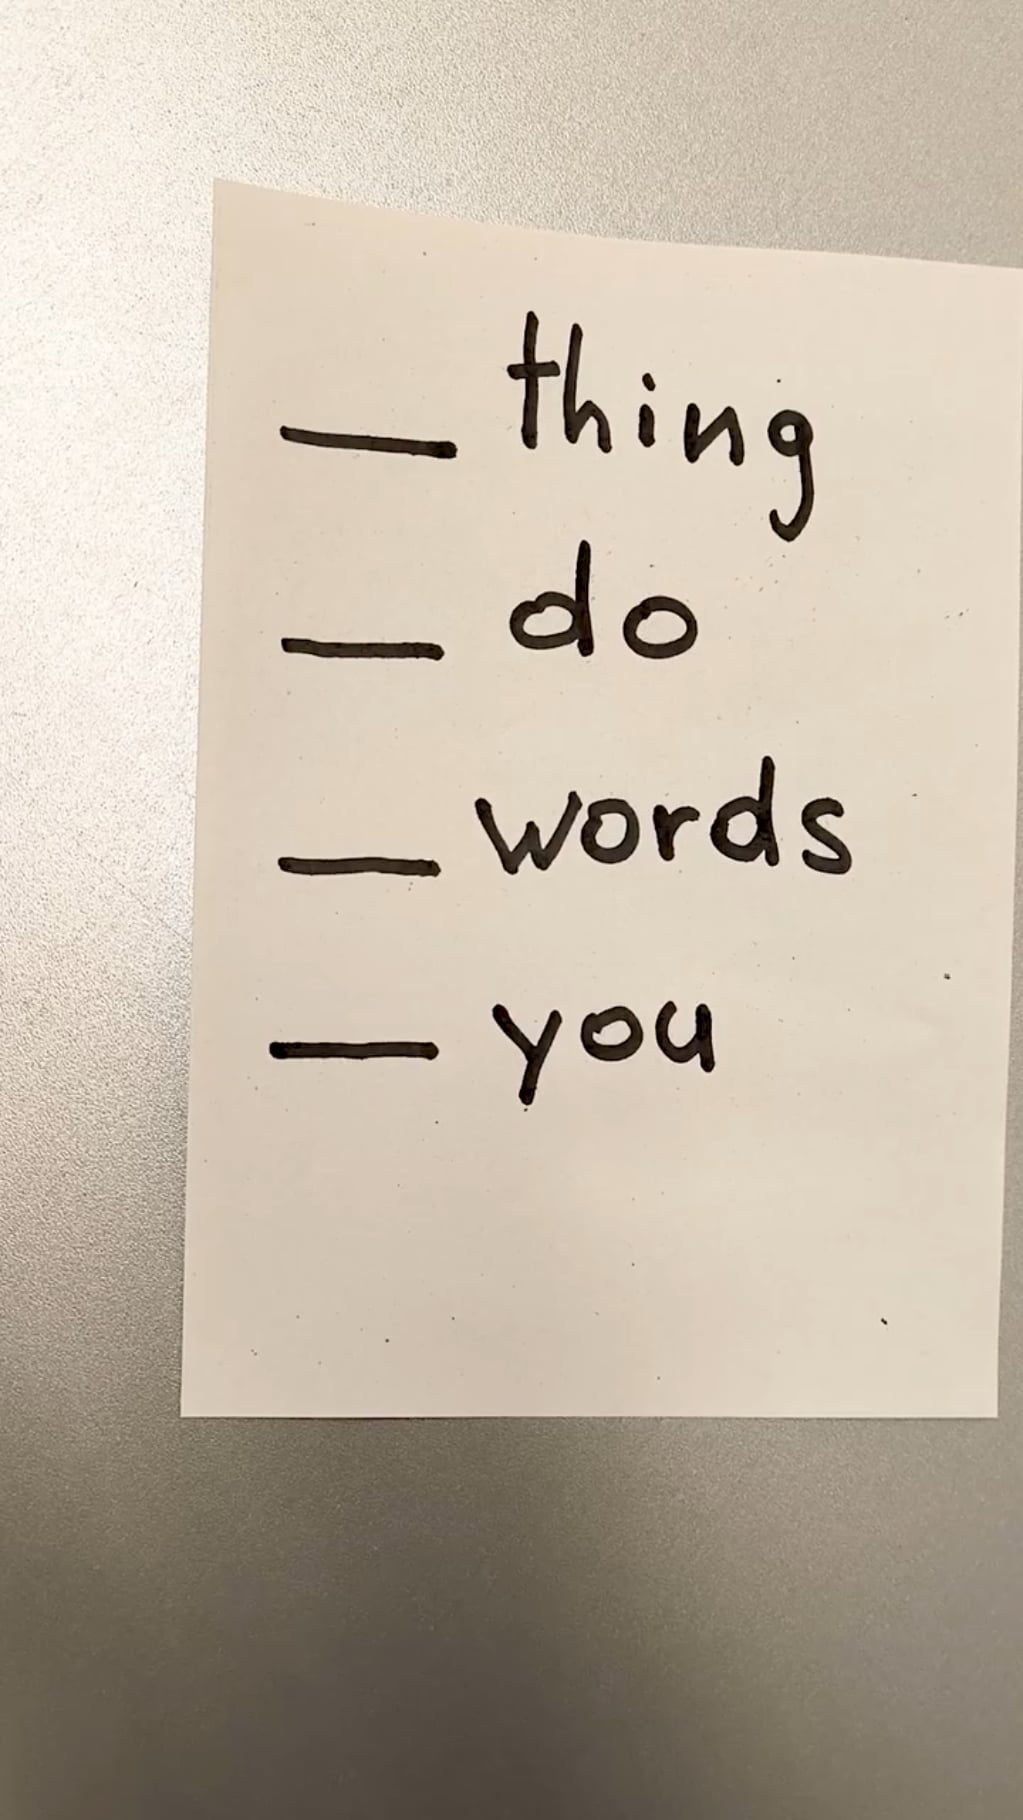 — thing
— do
— words
— you